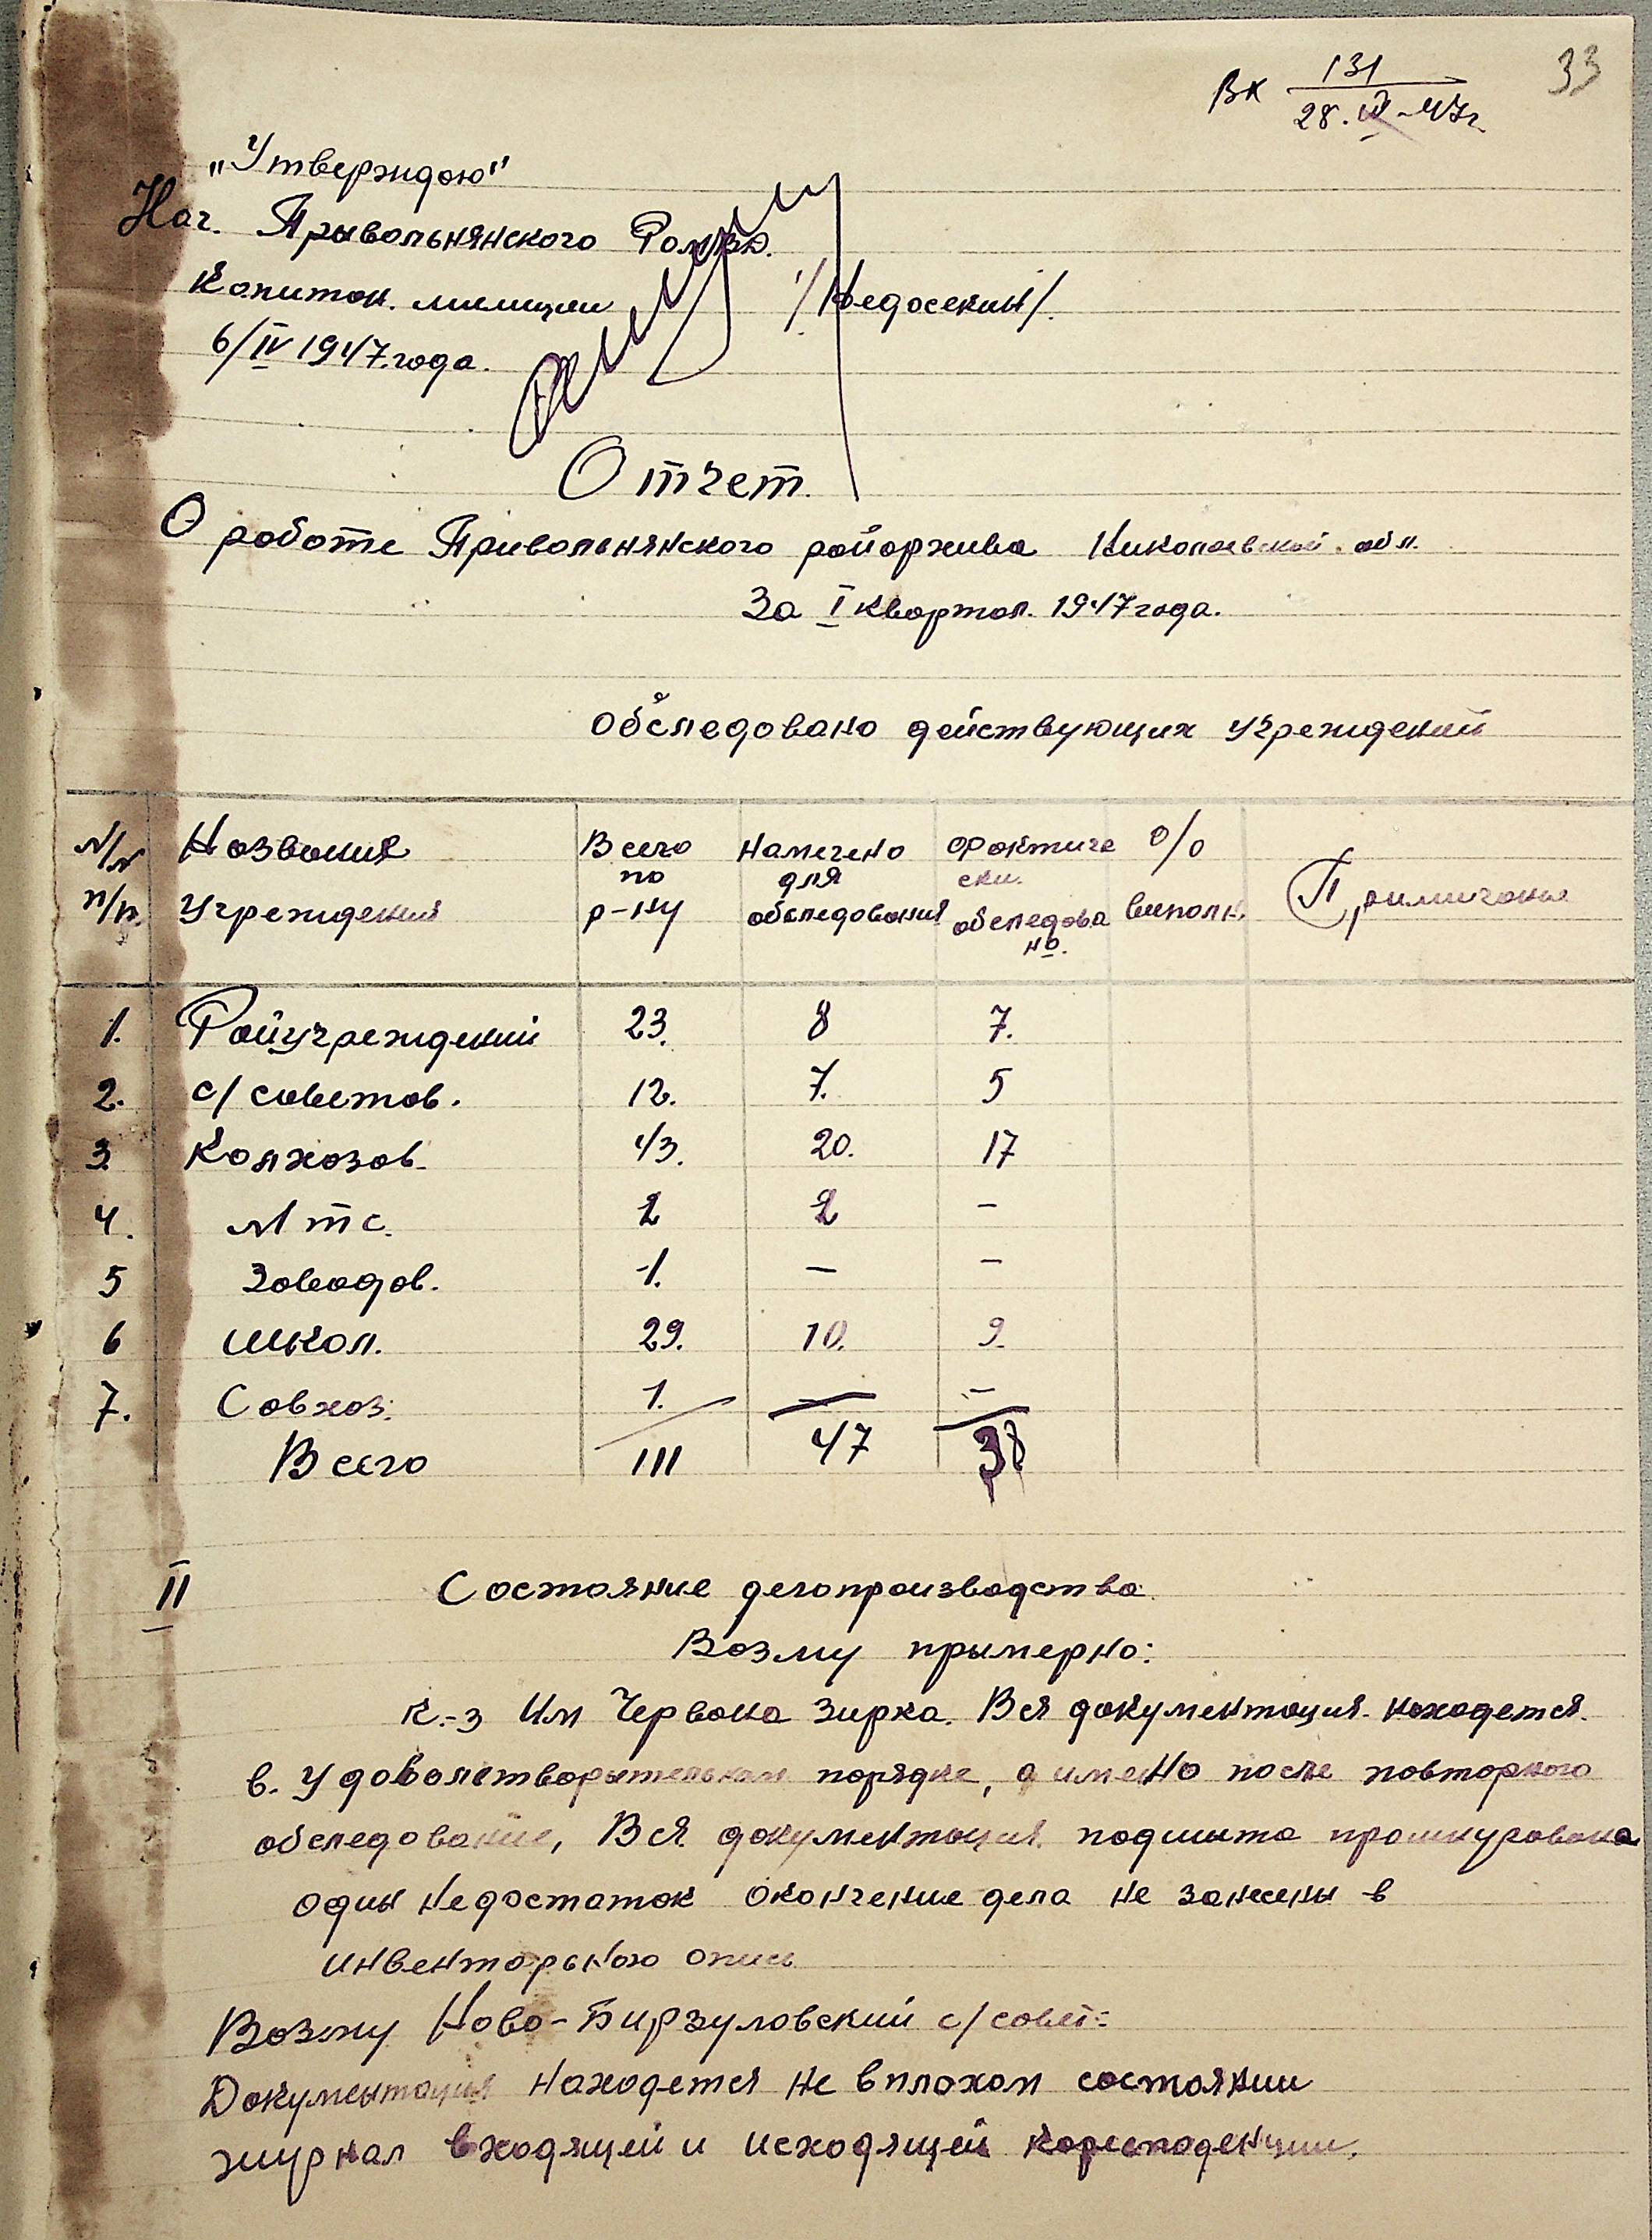 33
Вх 131
28.IV-47г.
"Утверждаю"
Нач. Прывольнянского Ром МВД.
Капитан. милиции /Недосекин/.
6/IV 1947.года.
Отчет.
О работе Привольнянского райархива Николаевской. обл.
За I квартал. 1947 года.
Обследовано действующих учреждений
№/№ п/п. Названия Учреждения Всего по р-ну Намечено для обследования Фактиче ски. обследова но. % выполн. Примичание
1. Райучреждений 23. 8 7.
2. с/советов. 12. 7. 5
3. Колхозов. 43. 20. 17
4. Мтс. 2 2 -
5 Заводов. 1. - -
6 школ. 29. 10. 9.
7. Совхоз. 1. - -
Всего 111 47 38
II Состояние делопроизводства.
Возму прымерно:
к.-з Им Червона Зирка. Вся документация. находется.
в. удоволетворытельном порядке, а имено после повторного
обследование, Вся документация подшыта прошнурована
один недостаток окончение дела не занесены в
инвенторьною опись
Возму Ново-Бирзуловский с/совет:
Документация находется не в плохом состоянии
журнал входящей и исходящей коресподенции.